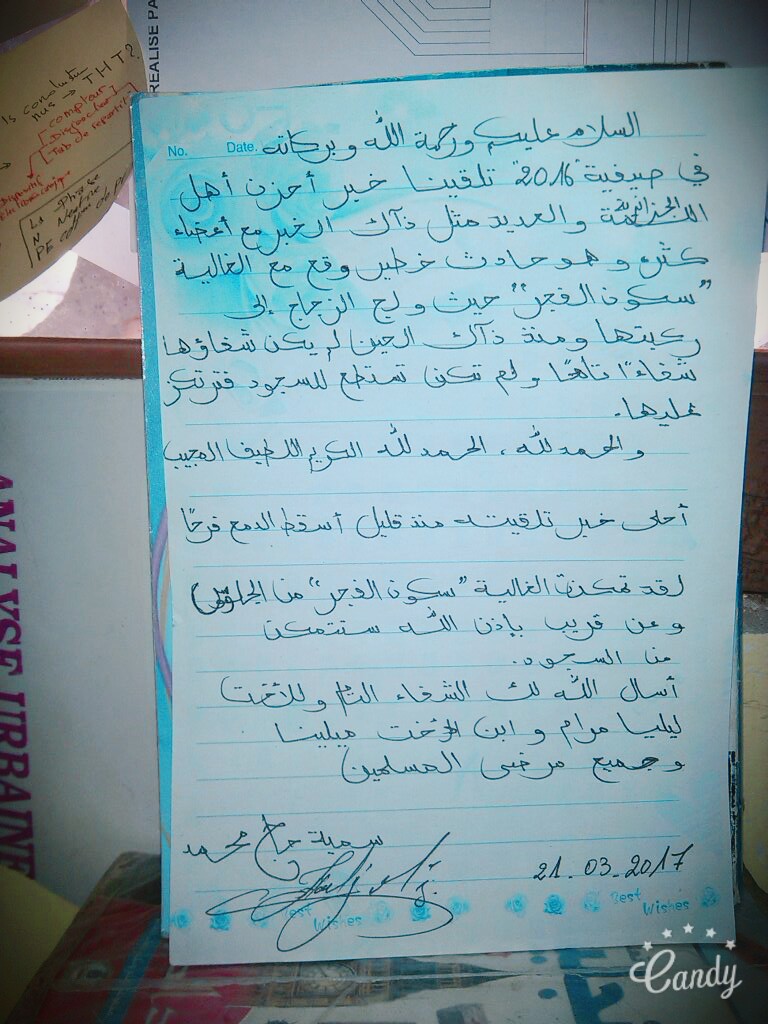 REALISE PA
Is conduite
nus → THT?
compteur
Disjoncteur
Tab de repartit
La phase
N Neutre
PE
ANALYSE URBAINE
No. Date.
السلام عليكم ورحمة الله وبركاته
في صيفية "2016" تلقينا خبر أحزن أهل
والعديد مثل ذاك الخبر مع أعضاء
كثر وهو حادث خطير وقع مع الغالية
"سكون الفجر" حيث ولج الزجاج إلى
ركبتها ومنذ ذاك الحين لم يكن شفاؤها
شفاءًا تامًا ولم تكن تستطع للسجود فترتكز
عليها.
والحمد لله، الحمد لله الكريم اللطيف المجيب
أحلى خبر تلقيته منذ قليل أسقط الدمع فرحًا
لقد تمكنت الغالية "سكون الفجر" من الجلوس
وعن قريب بإذن الله ستتمكن
من السجود.
أسال الله لك الشفاء التام وللأخت
ليليا مرام و ابن الأخت ميلينا
وجميع مرضى المسلمين
سمية حاج محمد
21.03.2017
Best Wishes
Best Wishes
Candy